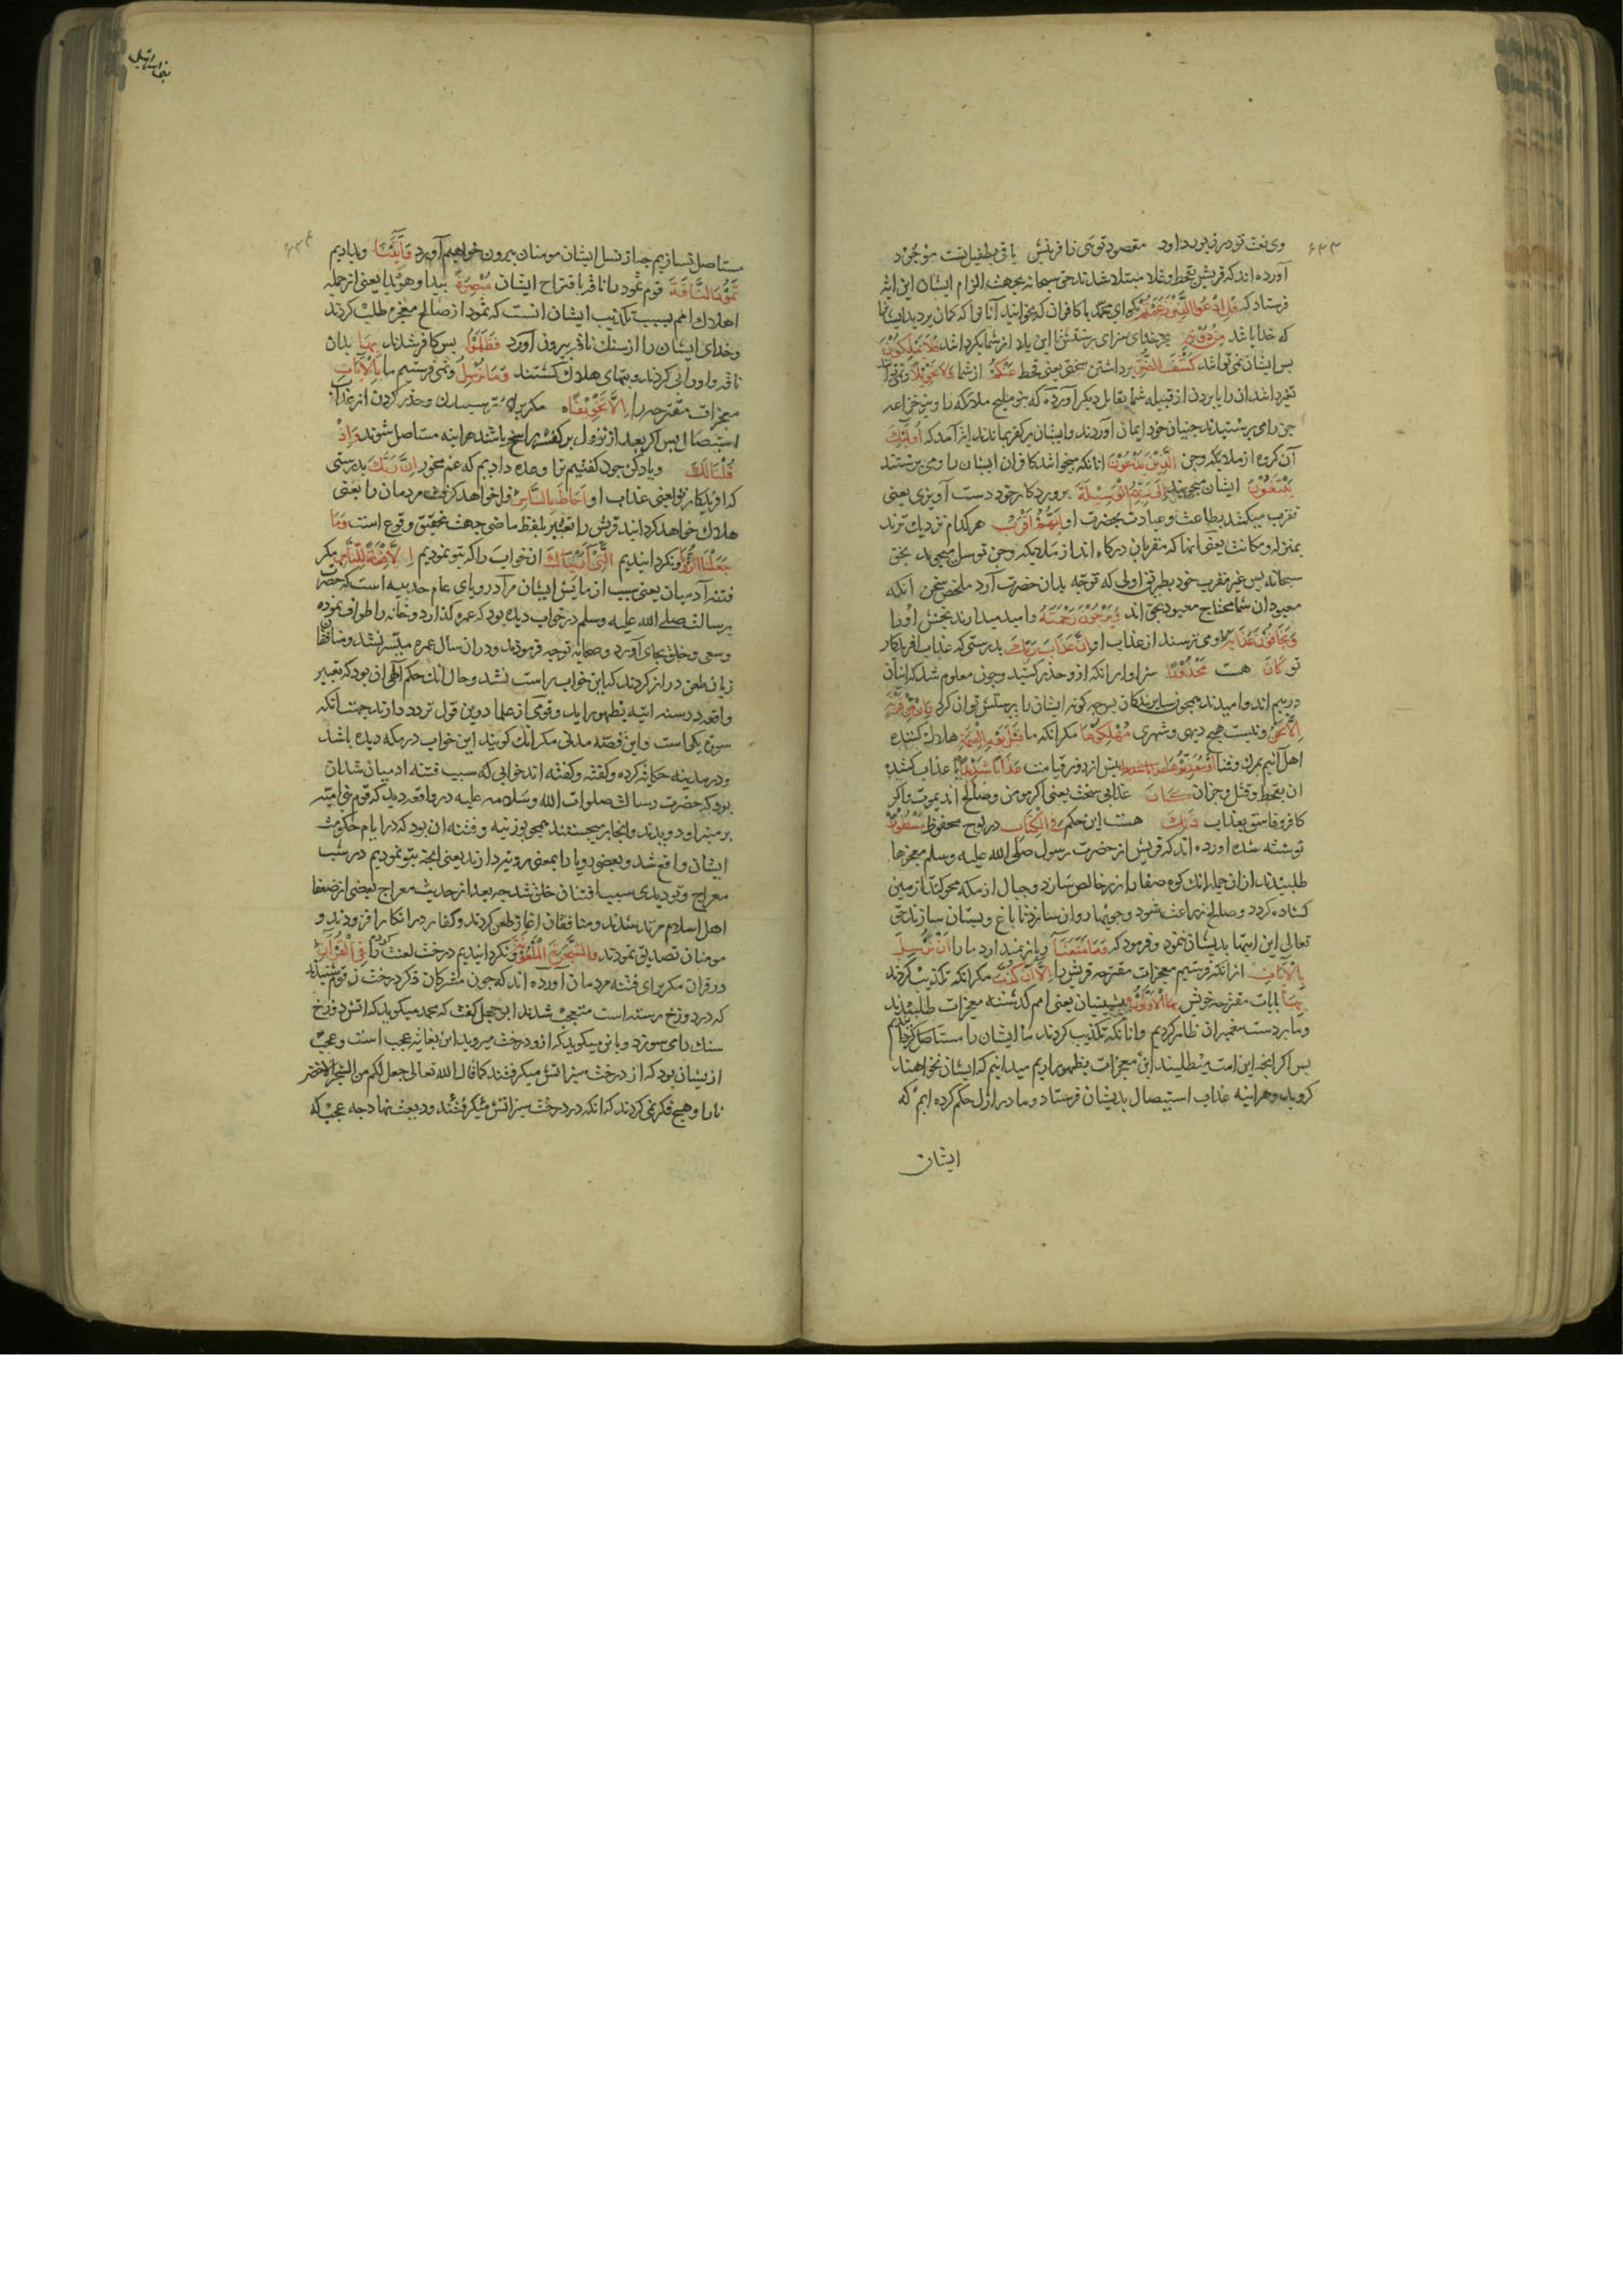 ۶۳۳
وی نعت تو در زبور داود مقصود توئی ز آفرینش باقی بطفیل تست موجود
آورده اند که قریش بقحط و غلا مبتلا شدند حق سبحانه بجهت الزام ایشان این آیت
فرستاد که قل ادعوا الذین زعمتم بکو ای محمد با کافران که بخوانید آنانرا که کمان بردید ایشانرا
که خدایانند من دونه بجز خدای سزای پرستش تا این بلا از شما بکردانند فلا یملکون
پس ایشان نمی توانند کشف الضر برداشتن سختی یعنی قحط عنکم از شما ولا تحویلا و نمی توانند
تغیر دادن انرا یا بردن از قبیله شما بقابل دیکر آورده که بنو ملیح ملائکه را و بنو خزاعه
جن را می پرستیدند جنیان خود ایمان اوردند و ایشان بر کفر بماندند ایت آمد که اولئک
آن کروه از ملائکه و جن الذین یدعون انانکه میخوانند کافران ایشان را و می پرستند
یبتغون ایشان میجویند الی ربهم الوسیلة بپروردکار خود دست آویزی یعنی
تقرب میکنند بطاعت و عبادت بحضرت او ایهم اقرب هر کدام نزدیك ترند
بمنزله و مکانت یعنی آنها که مقربان درکاه اند از ملائکه و جن توسل میجویند بحق
سبحانه پس غیر مقرب خود بطریق اولی که توجه بدان حضرت آرد ملخص سخن آنکه
معبودان شما محتاج معبود بحق اند و یرجون رحمته و امید میدارند بخشش او را
و یخافون عذابه و می ترسند از عذاب او ان عذاب ربك بدرستی که عذاب آفریدکار
تو کان هست محذورا سزاوار آنکه ازو حذر کنند و چون معلوم شد که ایشان
در بیم اند و امیدند همچون سایر بندکان پس چه کونه ایشان را پرستش توان کرد وان من قریة
الا نحن و نیست هیچ دیهی و شهری مهلکوها مکر آنکه ما قبل یوم القیمة هلاك کننده
اهل آنیم بمرك و فنا او معذبوها پیش از روز قیامت عذابا شدیدا یا عذاب کننده
ان بقحط و قتل و جز آن کان عذابی سخت یعنی اکر مومن و صالح اند بموت و اکر
کافر و فاسق بعذاب ذلك هست این حکم فی الکتاب در لوح محفوظ مسطورا
نوشته شده اورده اند که قریش از حضرت رسول صلی الله علیه وسلم معجزها
طلبیدند از ان جمله انك کوه صفا را زر خالص سازد و جبال از مکه محو کند تا زمین
کشاده کردد و صالح زراعت شود و جویها روان سازد تا باغ و بستان سازند حق
تعالی این ایتها بدیشان نمود و فرمود که وما منعنا و باز نمیدارد ما را ان نرسل
بالایات از انکه فرستیم معجزات مقترحه قریش را الا ان کذب مکر انکه تکذیب کردند
بها بایات مقترحه خویش الاولون پیشینیان یعنی امم کذشته معجزات طلبیدند
و ما بر دست پیغمبران ظاهر کردیم و انانکه تکذیب کردند ما ایشان را مستاصل کردانیدیم
پس اکر انچه این امت میطلبند این معجزات بظهور اریم میدانیم که ایشان نخواهند
کروید و هراینه عذاب استیصال بدیشان فرستاد و ما در ازل حکم کرده ایم که
ایشان
بنی اسرائیل
۶۳۴
مستاصل نسازیم چه از نسل ایشان مومنان بیرون خواهیم آورد و آتینا و دادیم
ثمود الناقة قوم ثمود را ناقه باقتراح ایشان مبصرة پیدا و هویدا یعنی از جمله
اهلاك امم بسبب تکذیب ایشان انست که ثمود از صالح معجزه طلب کردند
و خدای ایشان را از سنك ناقه بیرون آورد فظلموا پس کافر شدند بها بدان
ناقه و اورا پی کردند و بتمای هلاك کشتند وما نرسل و نمی فرستیم ما بالایات
معجزات مقترحه را الا تخویفا مکر برای ترسیدن و حذر کردن از عذاب
استیصال پس اکر بعد از نزول بر کفر راسخ باشند هراینه مستاصل شوند واذ
قلنا لك و یاد کن چون کفتیم ترا و وعده دادیم که غم مخور ان ربك بدرستی
که آفریدکار تو یعنی عذاب او احاط بالناس فرا خواهد کرفت مردمان را یعنی
هلاك خواهد کردانید قریش را تعبیر بلفظ ماضی جهت تحقیق وقوع است وما
جعلنا الرؤیا و نکردانیدیم التی اریناك ان خواب را که بتو نمودیم الا فتنة للناس مکر
فتنه آدمیان یعنی سبب ازمایش ایشان مراد رویای عام حدیبیه است که حضرت
رسالت صلی الله علیه وسلم در خواب دیده بود که عمره کذارد و خانه را طواف نموده
و سعی و حلق بجای آورد و صحابه توجه فرمودند و در ان سال عمره میسر نشد و منافقان
زبان طعن دراز کردند که این خواب راست نشد و حال انك حکم الهی ان بود که تعبیر
واقعه در سنه اتیه بظهور اید و قومی از علما درین قول تردد دارند جهت انکه
سوره مکی است و این قصه مدنی مکر انك کویند این خواب در مکه دیده باشد
و در مدینه حکایت کرده و کفته و کفته اند خوابی که سبب فتنه ادمیان شد ان
بود که حضرت رسالت صلوات الله وسلامه علیه در واقعه دید که قوم بنی امیه
بر منبر او دویدند و انجا بر میجستند همچو بوزنیه و فتنه ان بود که در ایام حکومت
ایشان واقع شد و بعضی رویا را بمعنی رویت دارند یعنی انچه بتو نمودیم در شب
معراج و تو دیدی سبب افتتان خلق شد چه بعد از حدیث معراج بعضی از ضعفا
اهل اسلام مرتد شدند و منافقان اغاز طعن کردند و کفار در انکار افزودند و
مومنان تصدیق نمودند والشجرة الملعونة و نکردانیدیم درخت لعنت کرده را فی القرآن
در قران مکر برای فتنه مردمان آورده اند که چون مشرکان ذکر درخت زقوم شنیدند
که در دوزخ رسته است متعجب شدند ابو جهل کفت که محمد میکوید که اتش دوزخ
سنك را می سوزد و باز میکوید که ازو درخت میروید این بغایت عجب است و عجب
از یشان بود که از درخت سبز اتش میکرفتند کما قال الله تعالی جعل لکم من الشجر الاخضر
نارا و هیچ فکر نمی کردند که انکه در درخت سبز اتش میکرفتند ودیعت نهاد چه عجب که